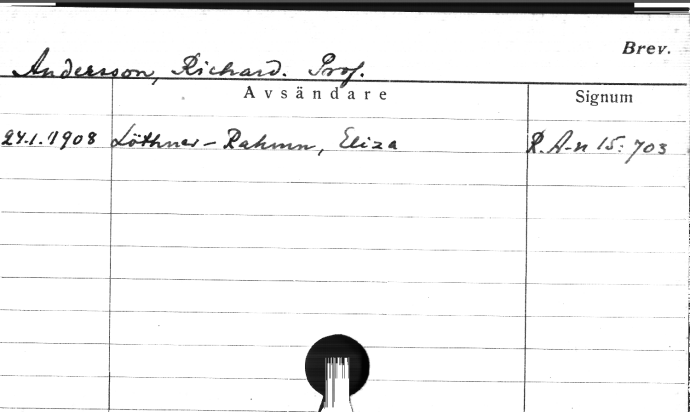 Brev.
Andersson, Richard. Prof.
Avsändare Signum
24.1.1908 Löthner-Rahmn, Eliza R.A-n 15:703